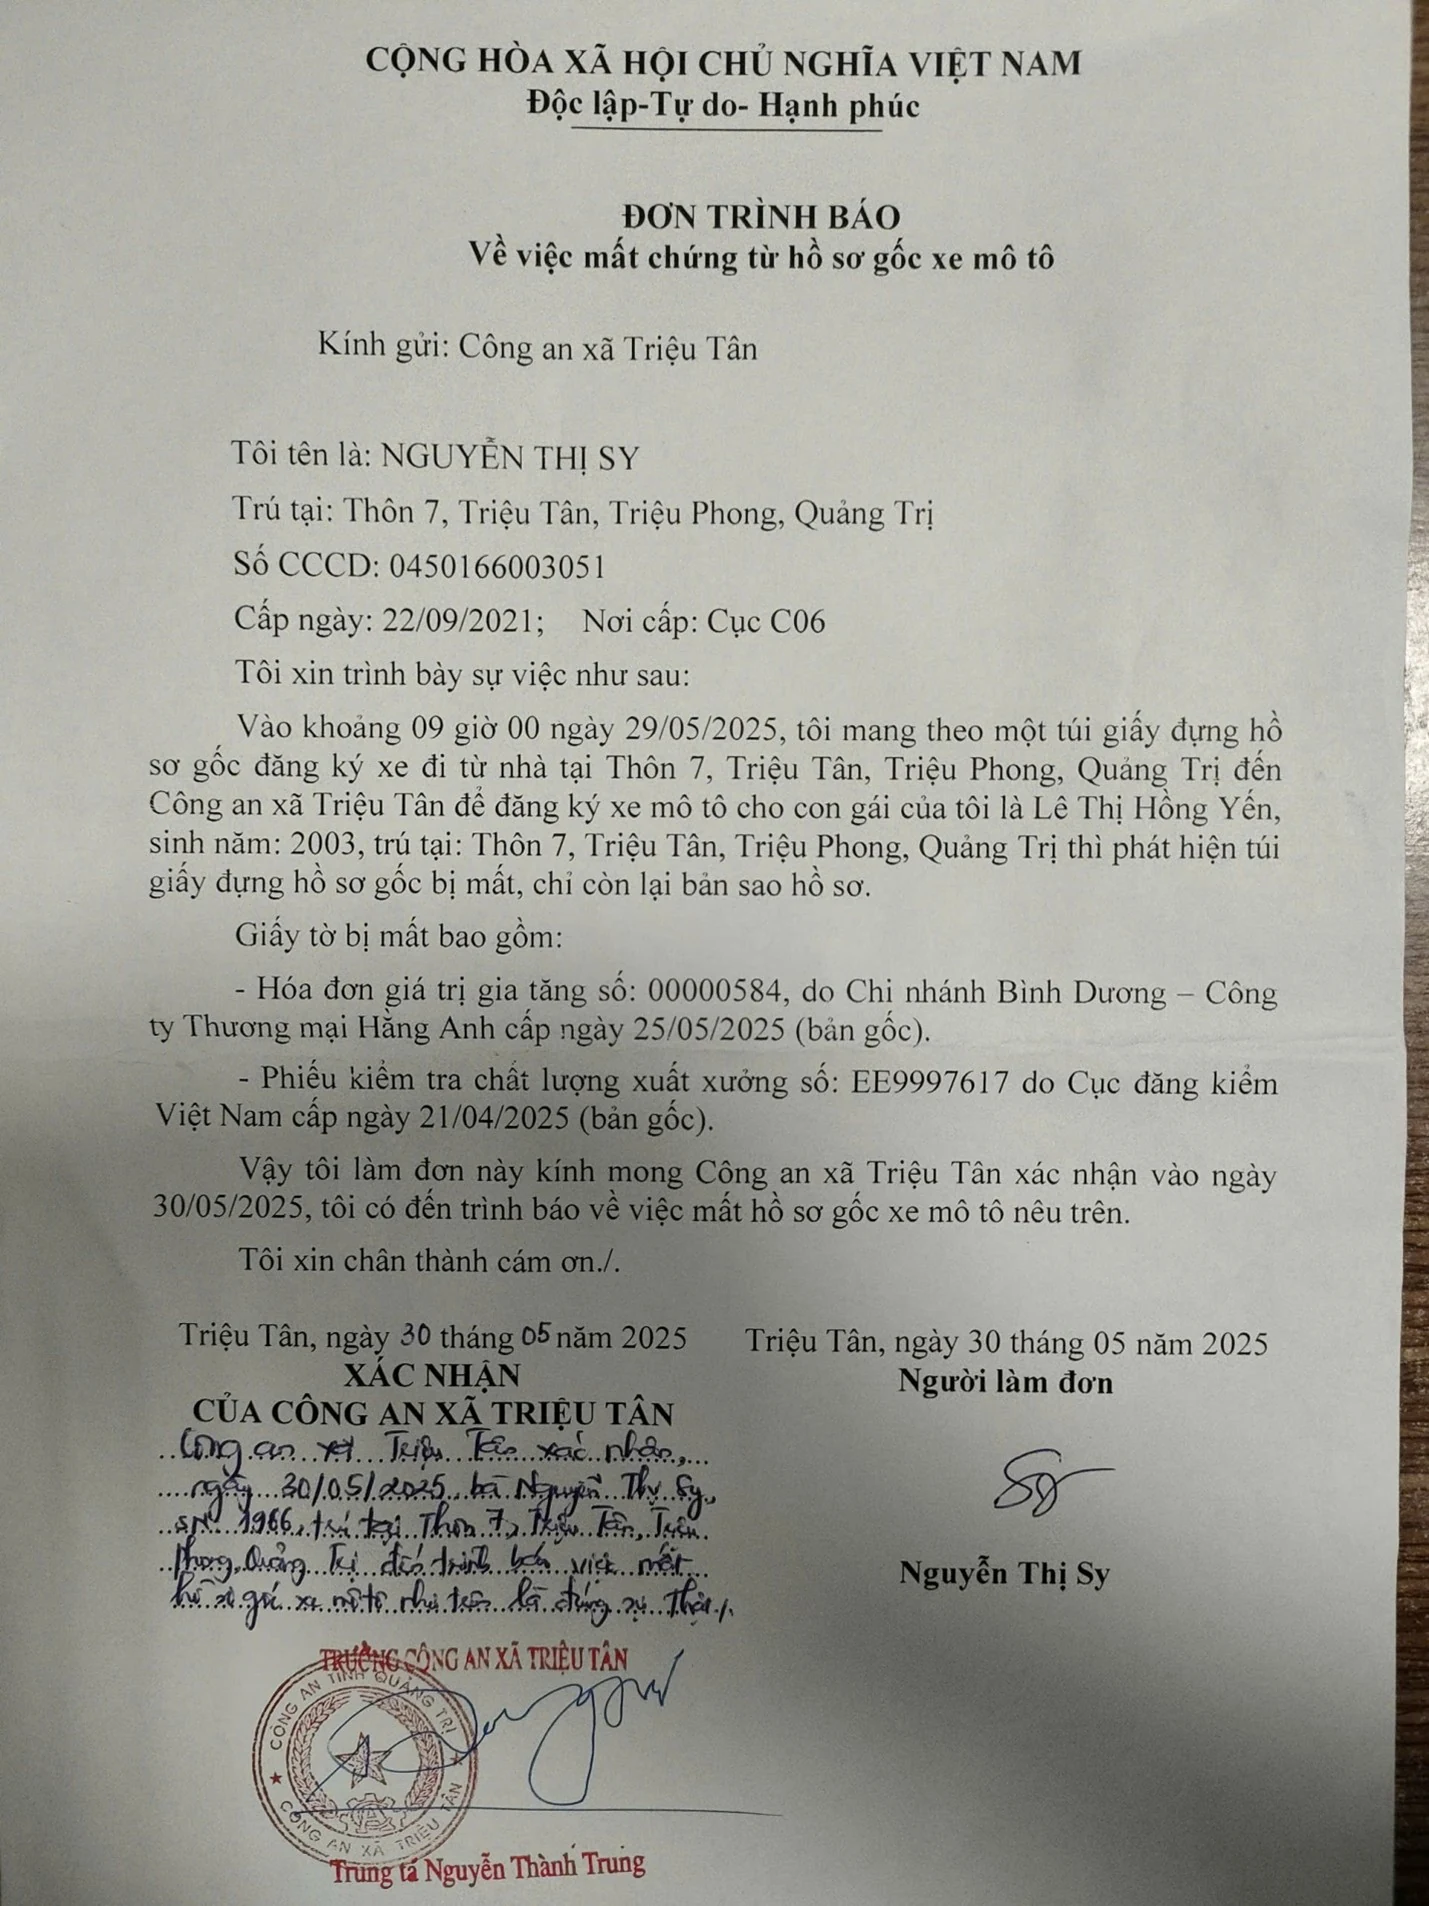 CỘNG HÒA XÃ HỘI CHỦ NGHĨA VIỆT NAM
Độc lập-Tự do- Hạnh phúc
ĐƠN TRÌNH BÁO
Về việc mất chứng từ hồ sơ gốc xe mô tô
Kính gửi: Công an xã Triệu Tân
Tôi tên là: NGUYỄN THỊ SY
Trú tại: Thôn 7, Triệu Tân, Triệu Phong, Quảng Trị
Số CCCD: 0450166003051
Cấp ngày: 22/09/2021; Nơi cấp: Cục C06
Tôi xin trình bày sự việc như sau:
Vào khoảng 09 giờ 00 ngày 29/05/2025, tôi mang theo một túi giấy đựng hồ
sơ gốc đăng ký xe đi từ nhà tại Thôn 7, Triệu Tân, Triệu Phong, Quảng Trị đến
Công an xã Triệu Tân để đăng ký xe mô tô cho con gái của tôi là Lê Thị Hồng Yến,
sinh năm: 2003, trú tại: Thôn 7, Triệu Tân, Triệu Phong, Quảng Trị thì phát hiện túi
giấy đựng hồ sơ gốc bị mất, chỉ còn lại bản sao hồ sơ.
Giấy tờ bị mất bao gồm:
- Hóa đơn giá trị gia tăng số: 00000584, do Chi nhánh Bình Dương – Công
ty Thương mại Hằng Anh cấp ngày 25/05/2025 (bản gốc).
- Phiếu kiểm tra chất lượng xuất xưởng số: EE9997617 do Cục đăng kiểm
Việt Nam cấp ngày 21/04/2025 (bản gốc).
Vậy tôi làm đơn này kính mong Công an xã Triệu Tân xác nhận vào ngày
30/05/2025, tôi có đến trình báo về việc mất hồ sơ gốc xe mô tô nêu trên.
Tôi xin chân thành cám ơn./.
Triệu Tân, ngày 30 tháng 05 năm 2025
XÁC NHẬN
CỦA CÔNG AN XÃ TRIỆU TÂN
Công an xã Triệu Tân xác nhận,
ngày 30/05/2025, bà Nguyễn Thị Sy,
SN 1966, trú tại Thôn 7, Triệu Tân, Triệu
Phong, Quảng Trị đến trình báo việc mất
hồ sơ gốc xe mô tô như trên là đúng sự thật./.
TRƯỞNG CÔNG AN XÃ TRIỆU TÂN
CÔNG AN TỈNH QUẢNG TRỊ
CÔNG AN XÃ TRIỆU TÂN
Trung tá Nguyễn Thành Trung
Triệu Tân, ngày 30 tháng 05 năm 2025
Người làm đơn
Sy
Nguyễn Thị Sy